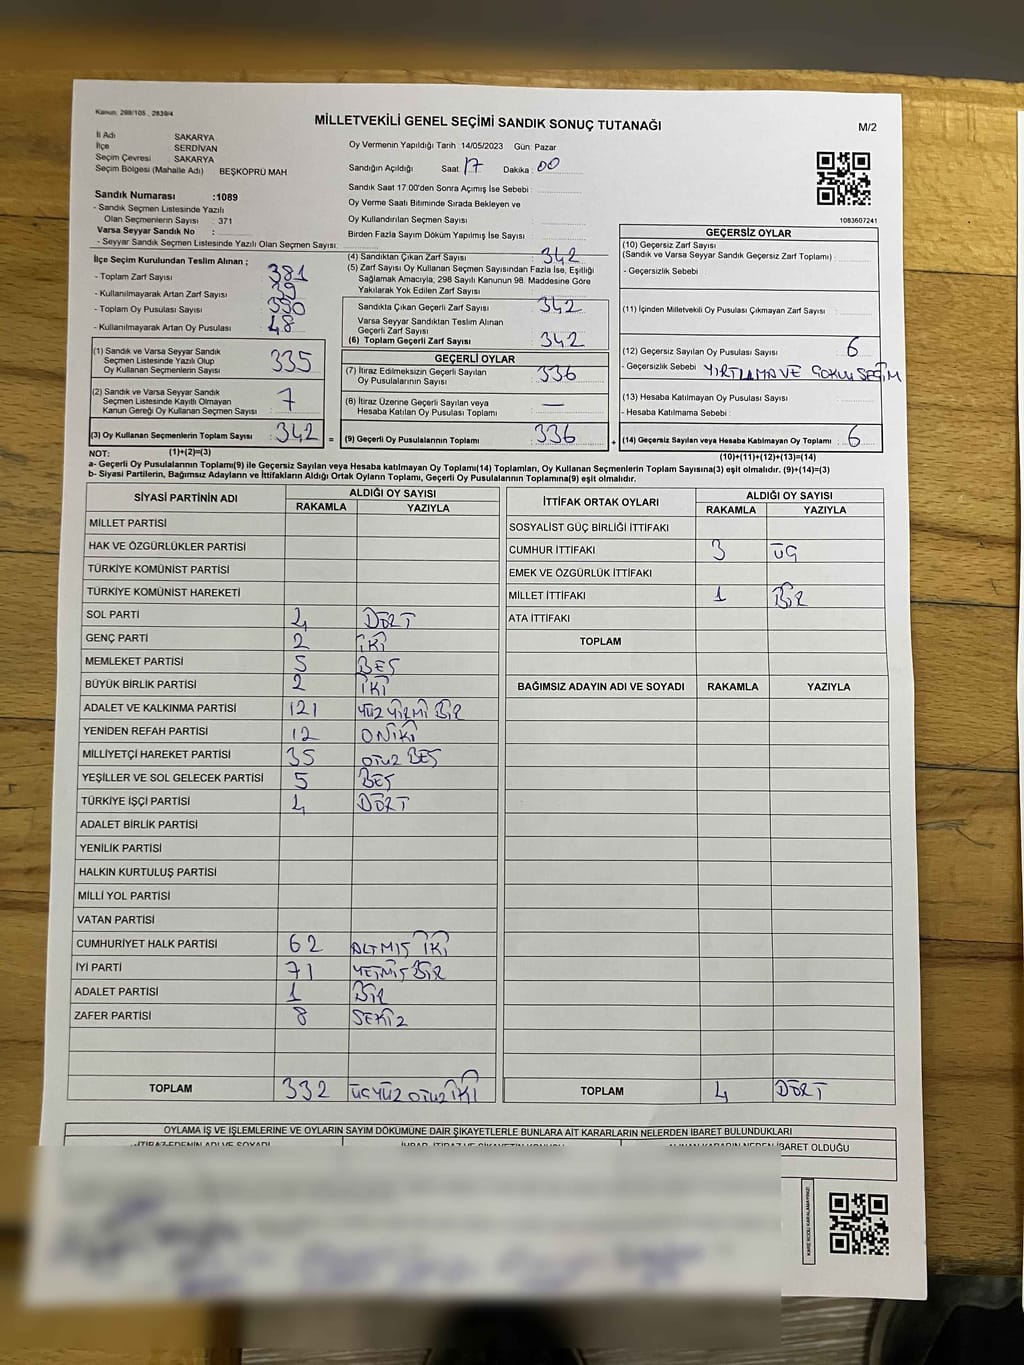 Kanun, 298/105 , 2839/4
MİLLETVEKİLİ GENEL SEÇİMİ SANDIK SONUÇ TUTANAĞI
M/2
İl Adı : SAKARYA
İlçe : SERDİVAN
Seçim Çevresi : SAKARYA
Seçim Bölgesi (Mahalle Adı) BEŞKÖPRÜ MAH
Sandık Numarası :1089
- Sandık Seçmen Listesinde Yazılı
Olan Seçmenlerin Sayısı : 371
Varsa Seyyar Sandık No :
- Seyyar Sandık Seçmen Listesinde Yazılı Olan Seçmen Sayısı:
Oy Vermenin Yapıldığı Tarih :14/05/2023 Gün: Pazar
Sandığın Açıldığı Saat 17 Dakika : 00
Sandık Saat 17.00'den Sonra Açımış İse Sebebi :
Oy Verme Saati Bitiminde Sırada Bekleyen ve
Oy Kullandırılan Seçmen Sayısı :
Birden Fazla Sayım Döküm Yapılmış İse Sayısı :
1083607241
İlçe Seçim Kurulundan Teslim Alınan ;
- Toplam Zarf Sayısı : 381
- Kullanılmayarak Artan Zarf Sayısı : 39
- Toplam Oy Pusulası Sayısı :
- Kullanılmayarak Artan Oy Pusulası : 48
(1) Sandık ve Varsa Seyyar Sandık
Seçmen Listesinde Yazılı Olup
Oy Kullanan Seçmenlerin Sayısı : 335
(2) Sandık ve Varsa Seyyar Sandık
Seçmen Listesinde Kayıtlı Olmayan
Kanun Gereği Oy Kullanan Seçmen Sayısı : 7
(3) Oy Kullanan Seçmenlerin Toplam Sayısı : 342 =
(1)+(2)=(3)
(4) Sandıktan Çıkan Zarf Sayısı : 342
(5) Zarf Sayısı Oy Kullanan Seçmen Sayısından Fazla İse, Eşitliği
Sağlamak Amacıyla, 298 Sayılı Kanunun 98. Maddesine Göre
Yakılarak Yok Edilen Zarf Sayısı :
Sandıkta Çıkan Geçerli Zarf Sayısı : 342
Varsa Seyyar Sandıktan Teslim Alınan
Geçerli Zarf Sayısı :
(6) Toplam Geçerli Zarf Sayısı : 342
GEÇERLİ OYLAR
(7) İtiraz Edilmeksizin Geçerli Sayılan
Oy Pusulalarının Sayısı : 336
(8) İtiraz Üzerine Geçerli Sayılan veya
Hesaba Katılan Oy Pusulası Toplamı : —
(9) Geçerli Oy Pusulalarının Toplamı : 336 +
GEÇERSİZ OYLAR
(10) Geçersiz Zarf Sayısı
(Sandık ve Varsa Seyyar Sandık Geçersiz Zarf Toplamı) :
- Geçersizlik Sebebi :
(11) İçinden Milletvekili Oy Pusulası Çıkmayan Zarf Sayısı :
(12) Geçersiz Sayılan Oy Pusulası Sayısı : 6
- Geçersizlik Sebebi : YIRTLAMA VE SEÇİM
(13) Hesaba Katılmayan Oy Pusulası Sayısı :
- Hesaba Katılmama Sebebi :
(14) Geçersiz Sayılan veya Hesaba Katılmayan Oy Toplamı : 6
(10)+(11)+(12)+(13)=(14)
NOT:
a- Geçerli Oy Pusulalarının Toplamı(9) ile Geçersiz Sayılan veya Hesaba katılmayan Oy Toplamı(14) Toplamları, Oy Kullanan Seçmenlerin Toplam Sayısına(3) eşit olmalıdır. (9)+(14)=(3)
b- Siyasi Partilerin, Bağımsız Adayların ve İttifakların Aldığı Ortak Oyların Toplamı, Geçerli Oy Pusulalarının Toplamına(9) eşit olmalıdır.
SİYASİ PARTİNİN ADI ALDIĞI OY SAYISI
RAKAMLA YAZIYLA
MİLLET PARTİSİ
HAK VE ÖZGÜRLÜKLER PARTİSİ
TÜRKİYE KOMÜNİST PARTİSİ
TÜRKİYE KOMÜNİST HAREKETİ
SOL PARTİ 4 DÖRT
GENÇ PARTİ 2 İKİ
MEMLEKET PARTİSİ 5 BEŞ
BÜYÜK BİRLİK PARTİSİ 2 İKİ
ADALET VE KALKINMA PARTİSİ 121 YÜZ YİRMİ BİR
YENİDEN REFAH PARTİSİ 12 ONİKİ
MİLLİYETÇİ HAREKET PARTİSİ 35 OTUZ BEŞ
YEŞİLLER VE SOL GELECEK PARTİSİ 5 BEŞ
TÜRKİYE İŞÇİ PARTİSİ 4 DÖRT
ADALET BİRLİK PARTİSİ
YENİLİK PARTİSİ
HALKIN KURTULUŞ PARTİSİ
MİLLİ YOL PARTİSİ
VATAN PARTİSİ
CUMHURİYET HALK PARTİSİ 62 ALTMIŞ İKİ
İYİ PARTİ 71 YETMİŞ BİR
ADALET PARTİSİ 1 BİR
ZAFER PARTİSİ 8 SEKİZ
TOPLAM 332 ÜÇYÜZ OTUZ İKİ
İTTİFAK ORTAK OYLARI ALDIĞI OY SAYISI
RAKAMLA YAZIYLA
SOSYALİST GÜÇ BİRLİĞİ İTTİFAKI
CUMHUR İTTİFAKI 3 ÜÇ
EMEK VE ÖZGÜRLÜK İTTİFAKI
MİLLET İTTİFAKI 1 BİR
ATA İTTİFAKI
TOPLAM
BAĞIMSIZ ADAYIN ADI VE SOYADI RAKAMLA YAZIYLA
TOPLAM 4 DÖRT
OYLAMA İŞ VE İŞLEMLERİNE VE OYLARIN SAYIM DÖKÜMÜNE DAİR ŞİKAYETLERLE BUNLARA AİT KARARLARIN NELERDEN İBARET BULUNDUKLARI
İTİRAZ EDENİN ADI VE SOYADI İHBAR, İTİRAZ VE ŞİKAYETİN KONUSU ALINAN KARARIN NEDEN İBARET OLDUĞU
KARE KODU KARALAMAYINIZ!